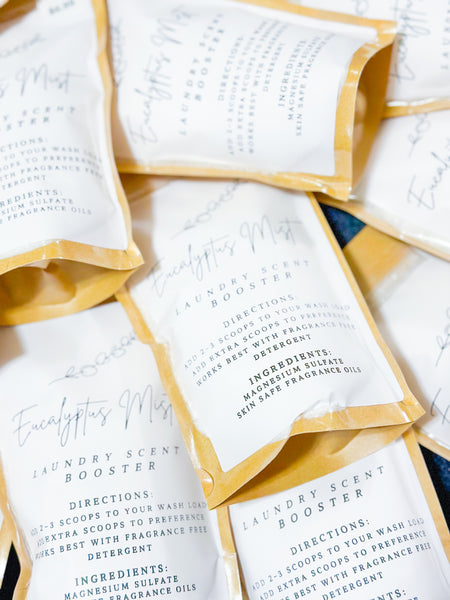 Eucalyptus Mist
LAUNDRY SCENT
BOOSTER
DIRECTIONS:
ADD 2-3 SCOOPS TO YOUR WASH LOAD
ADD EXTRA SCOOPS TO PREFERENCE
WORKS BEST WITH FRAGRANCE FREE
DETERGENT
INGREDIENTS:
MAGNESIUM SULFATE
SKIN SAFE FRAGRANCE OILS
Eucalyptus Mist
LAUNDRY SCENT
BOOSTER
DIRECTIONS:
ADD 2-3 SCOOPS TO YOUR
ADD EXTRA SCOOPS TO
WORKS BEST WITH FRAGRANCE
DETERGENT
INGREDIENTS:
MAGNESIUM SULFATE
SKIN SAFE FRAGRANCE OILS
Eucalyptus Mist
LAUNDRY SCENT
BOOSTER
DIRECTIONS:
ADD 2-3 SCOOPS TO YOUR WASH LOAD
ADD EXTRA SCOOPS TO PREFERENCE
WORKS BEST WITH FRAGRANCE FREE
DETERGENT
INGREDIENTS:
MAGNESIUM SULFATE
SKIN SAFE FRAGRANCE OILS
Eucalyptus Mist
LAUNDRY SCENT
BOOSTER
DIRECTIONS:
ADD 2-3 SCOOPS TO YOUR WASH LOAD
ADD EXTRA SCOOPS TO PREFERENCE
WORKS BEST WITH FRAGRANCE FREE
DETERGENT
INGREDIENTS:
MAGNESIUM SULFATE
SKIN SAFE FRAGRANCE OILS
LAUNDRY SCENT
BOOSTER
DIRECTIONS:
ADD 2-3 SCOOPS TO YOUR WASH
ADD EXTRA SCOOPS TO PREFERENCE
WORKS BEST WITH FRAGRANCE FREE
DETERGENT
INGREDIENTS: